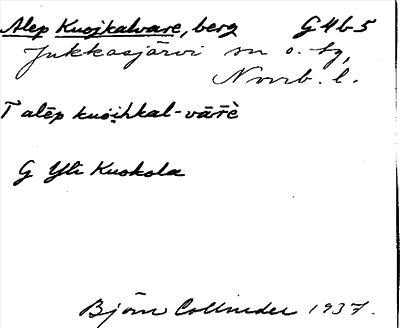 Alep Kuojkalvare, berg G4b5
Jukkasjärvi sn o. tg,
Norrb. l.
T alēp kuo̬i̬hkal-vārē̆
G Yli Kuokola
Björn Collinder 1937.